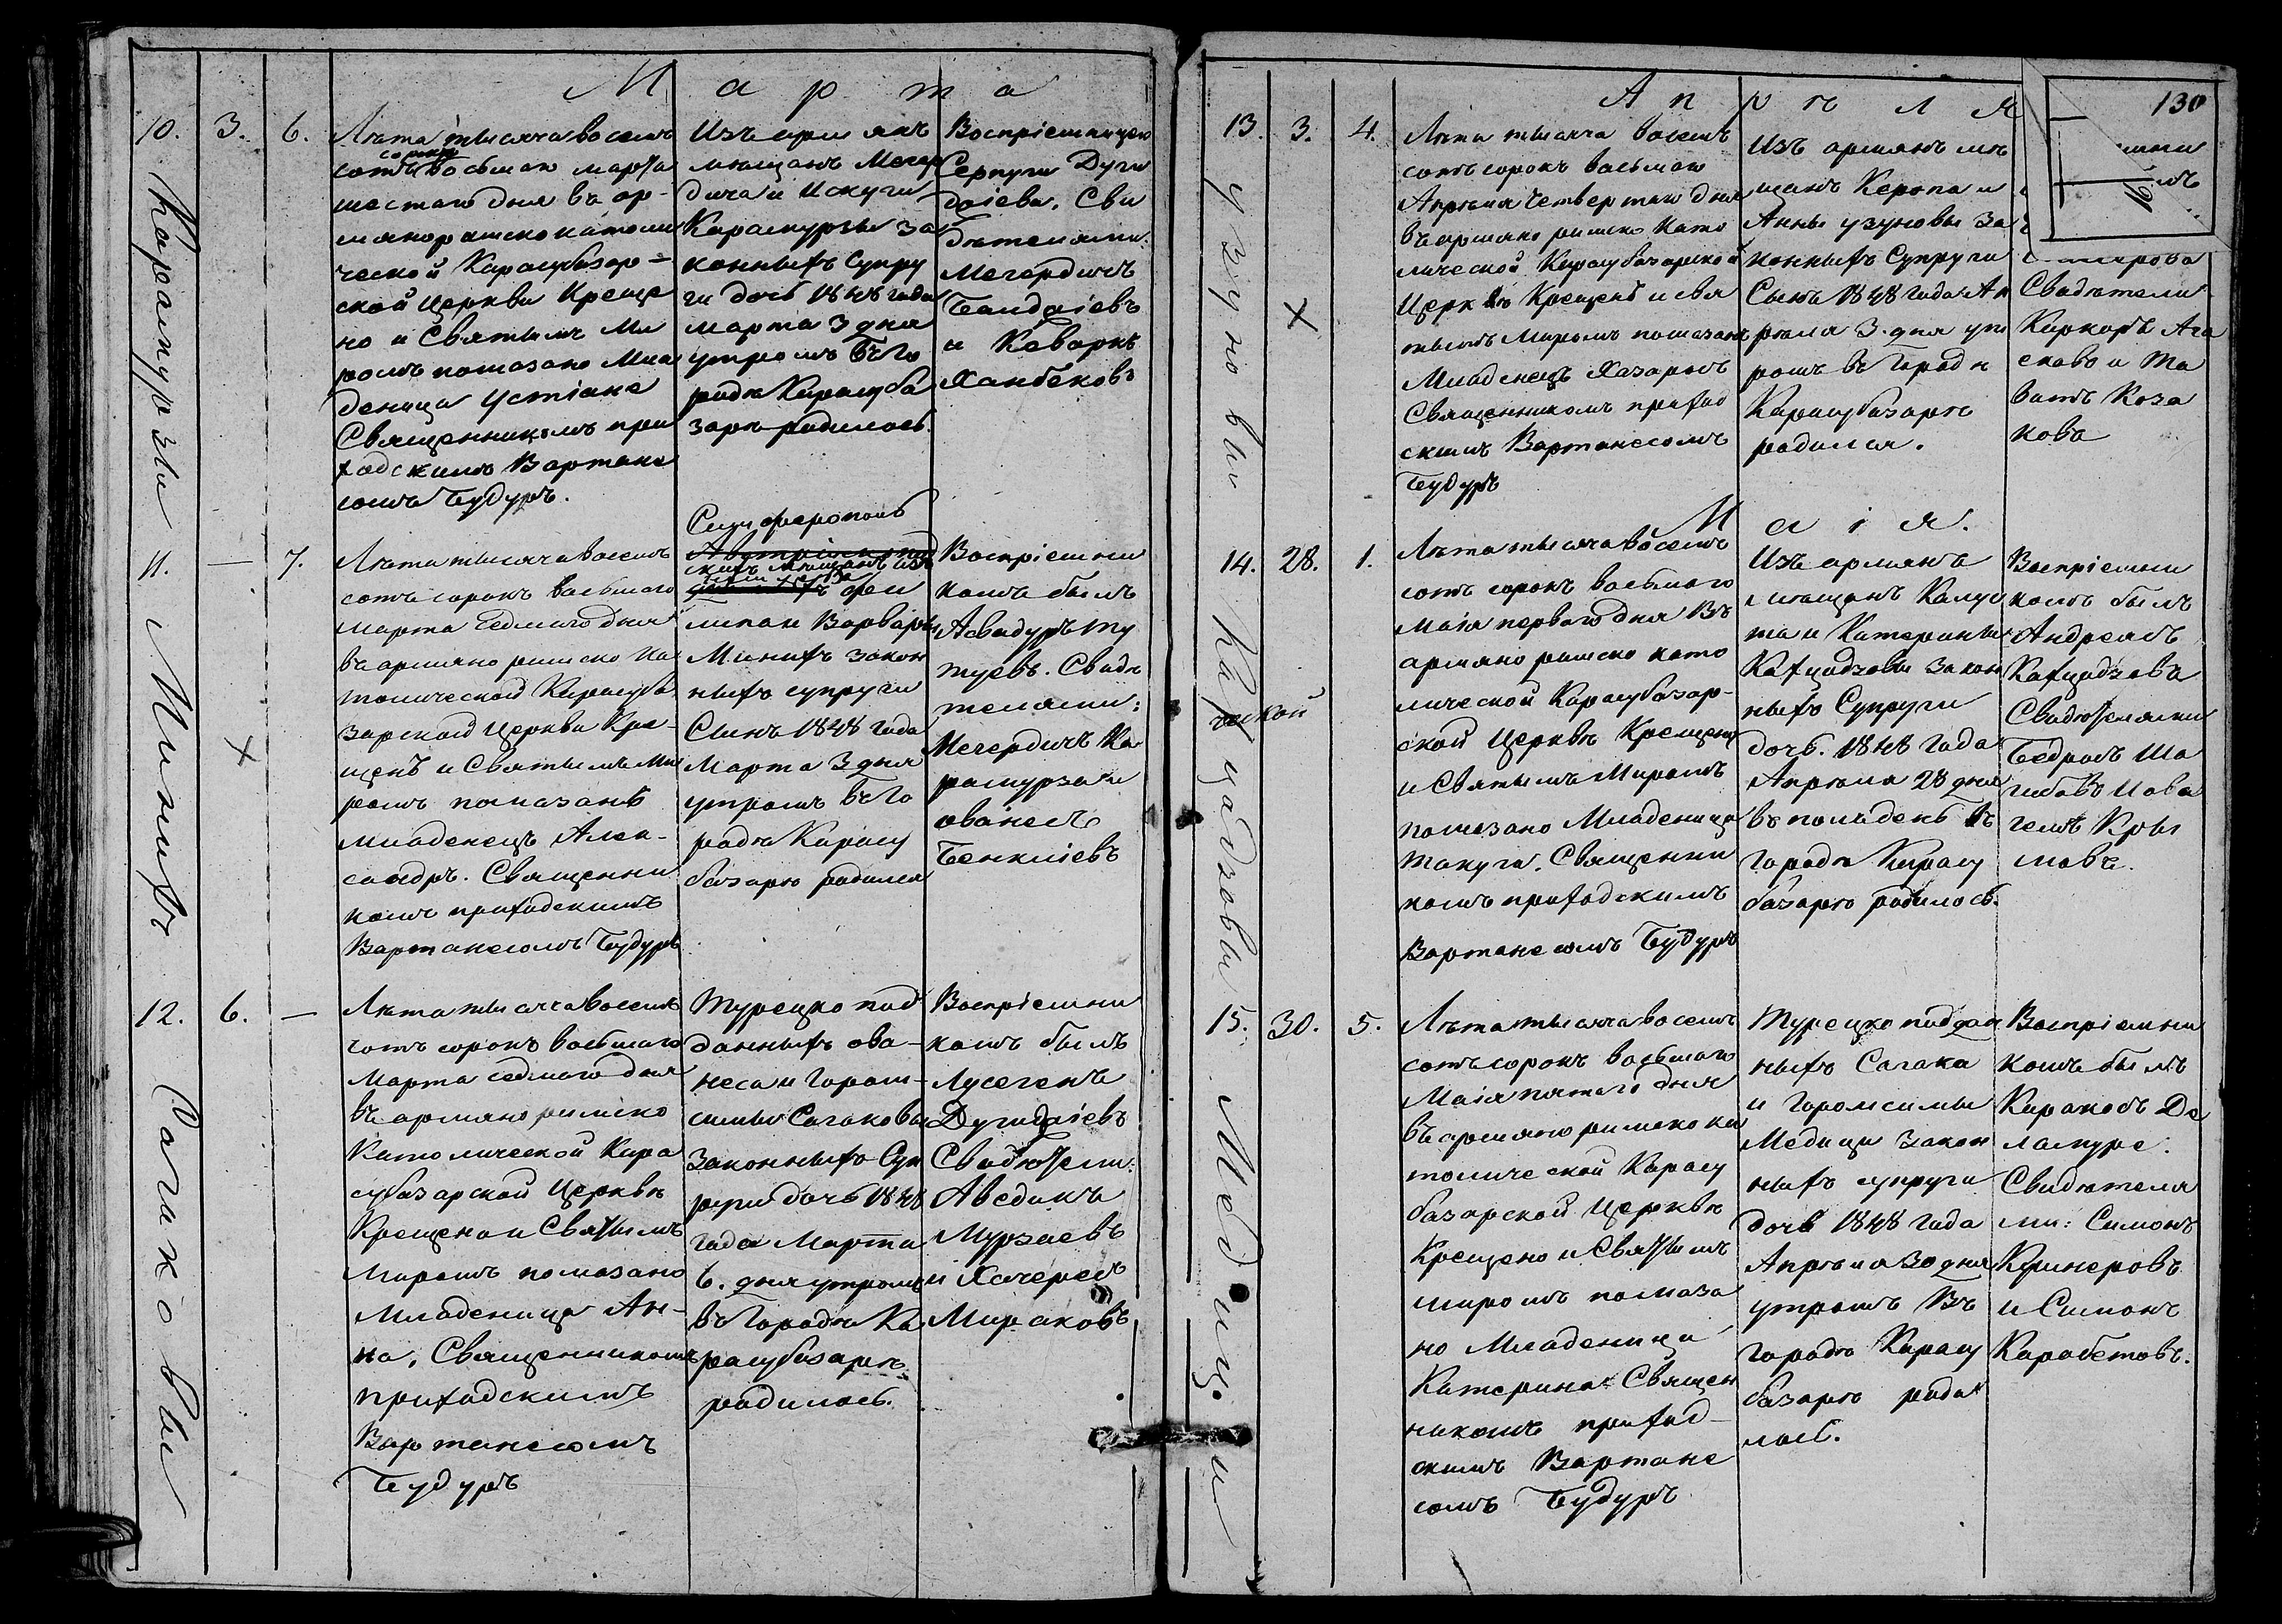 Марта
10.
3.
6.
Караmурзы
Лѣта тысяча восемь
сорокъ
сотъ восьмаго марта
шестаго дня въ ар-
мяноримскокатоли
ческой Карасубазар-
ской Церкви Креще
но и Святымъ Ми
ромъ помазано Мла
деница Устіане
Священникомъ при
ходскимъ Вартане
сомъ Будуръ.
Изъ армянъ
мѣщанъ Мегер
дича и Искуги
Карамурзы за
конныхъ Супру
ги дочь 1848 года
марта 3 дня
утромъ въ го
родѣ Карасуба
зарѣ родилась.
Воспріемницею
Серпуги Дуги
даіева. Сви
дѣтелями:
Мегердичъ
Бандаіевъ
и Кеваркъ
Ханбековъ
11.
—
7.
Минихъ
Лѣта тысяча восемь
сотъ сорокъ восьмаго
марта седмаго дня
въ армяно римско ка
толической Карасуба
зарской Церкви Кре-
щенъ и Святымъ Ми
ромъ помазанъ
младенецъ Алек-
сандръ. Священни
комъ приходскимъ
Вартанесомъ Будуръ
Симферополь
скихъ мѣщанъ изъ
Фи
липа и Варвары
Минихъ закон
ныхъ супруги
Сынъ 1848 года
Марта 3 дня
утромъ въ го
родѣ Карасу
базарѣ родился
Воспріемни
комъ былъ
Асвадуръ Ту
туевъ. Свидѣ
телями:
Мегердичъ Ка
рамурза и
Ованесъ
Бенкліевъ
12.
6.
—
Сагаковы
Лѣта тысяча восемь
сотъ сорокъ восьмаго
Марта седмаго дня
въ армяно римско
Католической Кара
субазарской Церквѣ
Крещено и Святымъ
Миромъ помазано
Младеница Ан-
на. Священникомъ
приходскимъ
Вартанесомъ
Будуръ
Турецко под
данныхъ Ова-
неса и Гором-
симы Сагаковы
законныхъ Суп
руги дочь 1848
года Марта
6. дня утромъ
въ городѣ Ка
расубазарѣ
родилась.
Воспріемни
комъ былъ
Лусегенъ
Дугидаіевъ
Свидѣтели:
Аведикъ
Мурзаевъ
и Хачересъ
Мираковъ
Апрѣля
130
13.
3.
4.
Узуновы
Лѣта тысяча восемь
сотъ сорокъ восьмаго
Апрѣля четвертаго дня
въ армяно римско като
лической Карасубазарской
Церквѣ Крещенъ и свя
тымъ Миромъ помазанъ
Младенецъ Хазаросъ
Священникомъ приход
скимъ Вартанесомъ
Будуръ
Изъ армянъ мѣ
щанъ Керопа и
Анны Узуновы за
конныхъ Супруги
Сынъ 1848 года Ап
рѣля 3. дня ут
ромъ въ городѣ
Карасубазарѣ
родился.
Свидѣтели
Киркоръ Ага
сковъ и Та
ватъ Коза
ковъ
Маія.
14.
28.
1.
Кахцадзовы
ческой
Лѣта тысяча восемь
сотъ сорокъ восьмаго
маія перваго дня въ
армяно римско като
лической Карасубазар-
ской Церквѣ Крещено
и Святымъ Миромъ
помазано Младеница
Такуги. Священни
комъ приходскимъ
Вартанесомъ Будуръ
Изъ армянъ
мѣщанъ Калус
та и Катерины
Кахцадзовы закон
ныхъ Супруги
дочь. 1848 года
Апрѣля 28 дня
въ полъдень въ
городѣ Карасу
базарѣ родилось.
Воспріемни
комъ былъ
Андреасъ
Кахцадзевъ
Свидѣтелями
Бедросъ Ша
гибовъ Иова
гемъ Кры
мовъ.
15.
30.
5.
Медици
Лѣта тысяча восемь
сотъ сорокъ восьмаго
Маія пятаго дня
въ армяно римско ка
толической Карасу
базарской Церквѣ
Крещено и Святымъ
миромъ помаза
но Младеница
Катерина Священ
никомъ приход-
скимъ Вартане
сомъ Будуръ
Турецко поддан
ныхъ Сагака
и Горомсимы
Медици закон
ныхъ супруги
дочь 1848 года
Апрѣля 30 дня
утромъ въ
городѣ Карасу
базарѣ роди
лось.
Воспріемни
комъ былъ
Киракосъ Де
ламуре.
Свидѣтеля
ми: Симонъ
Кушнеровъ
и Симонъ
Карабетовъ.